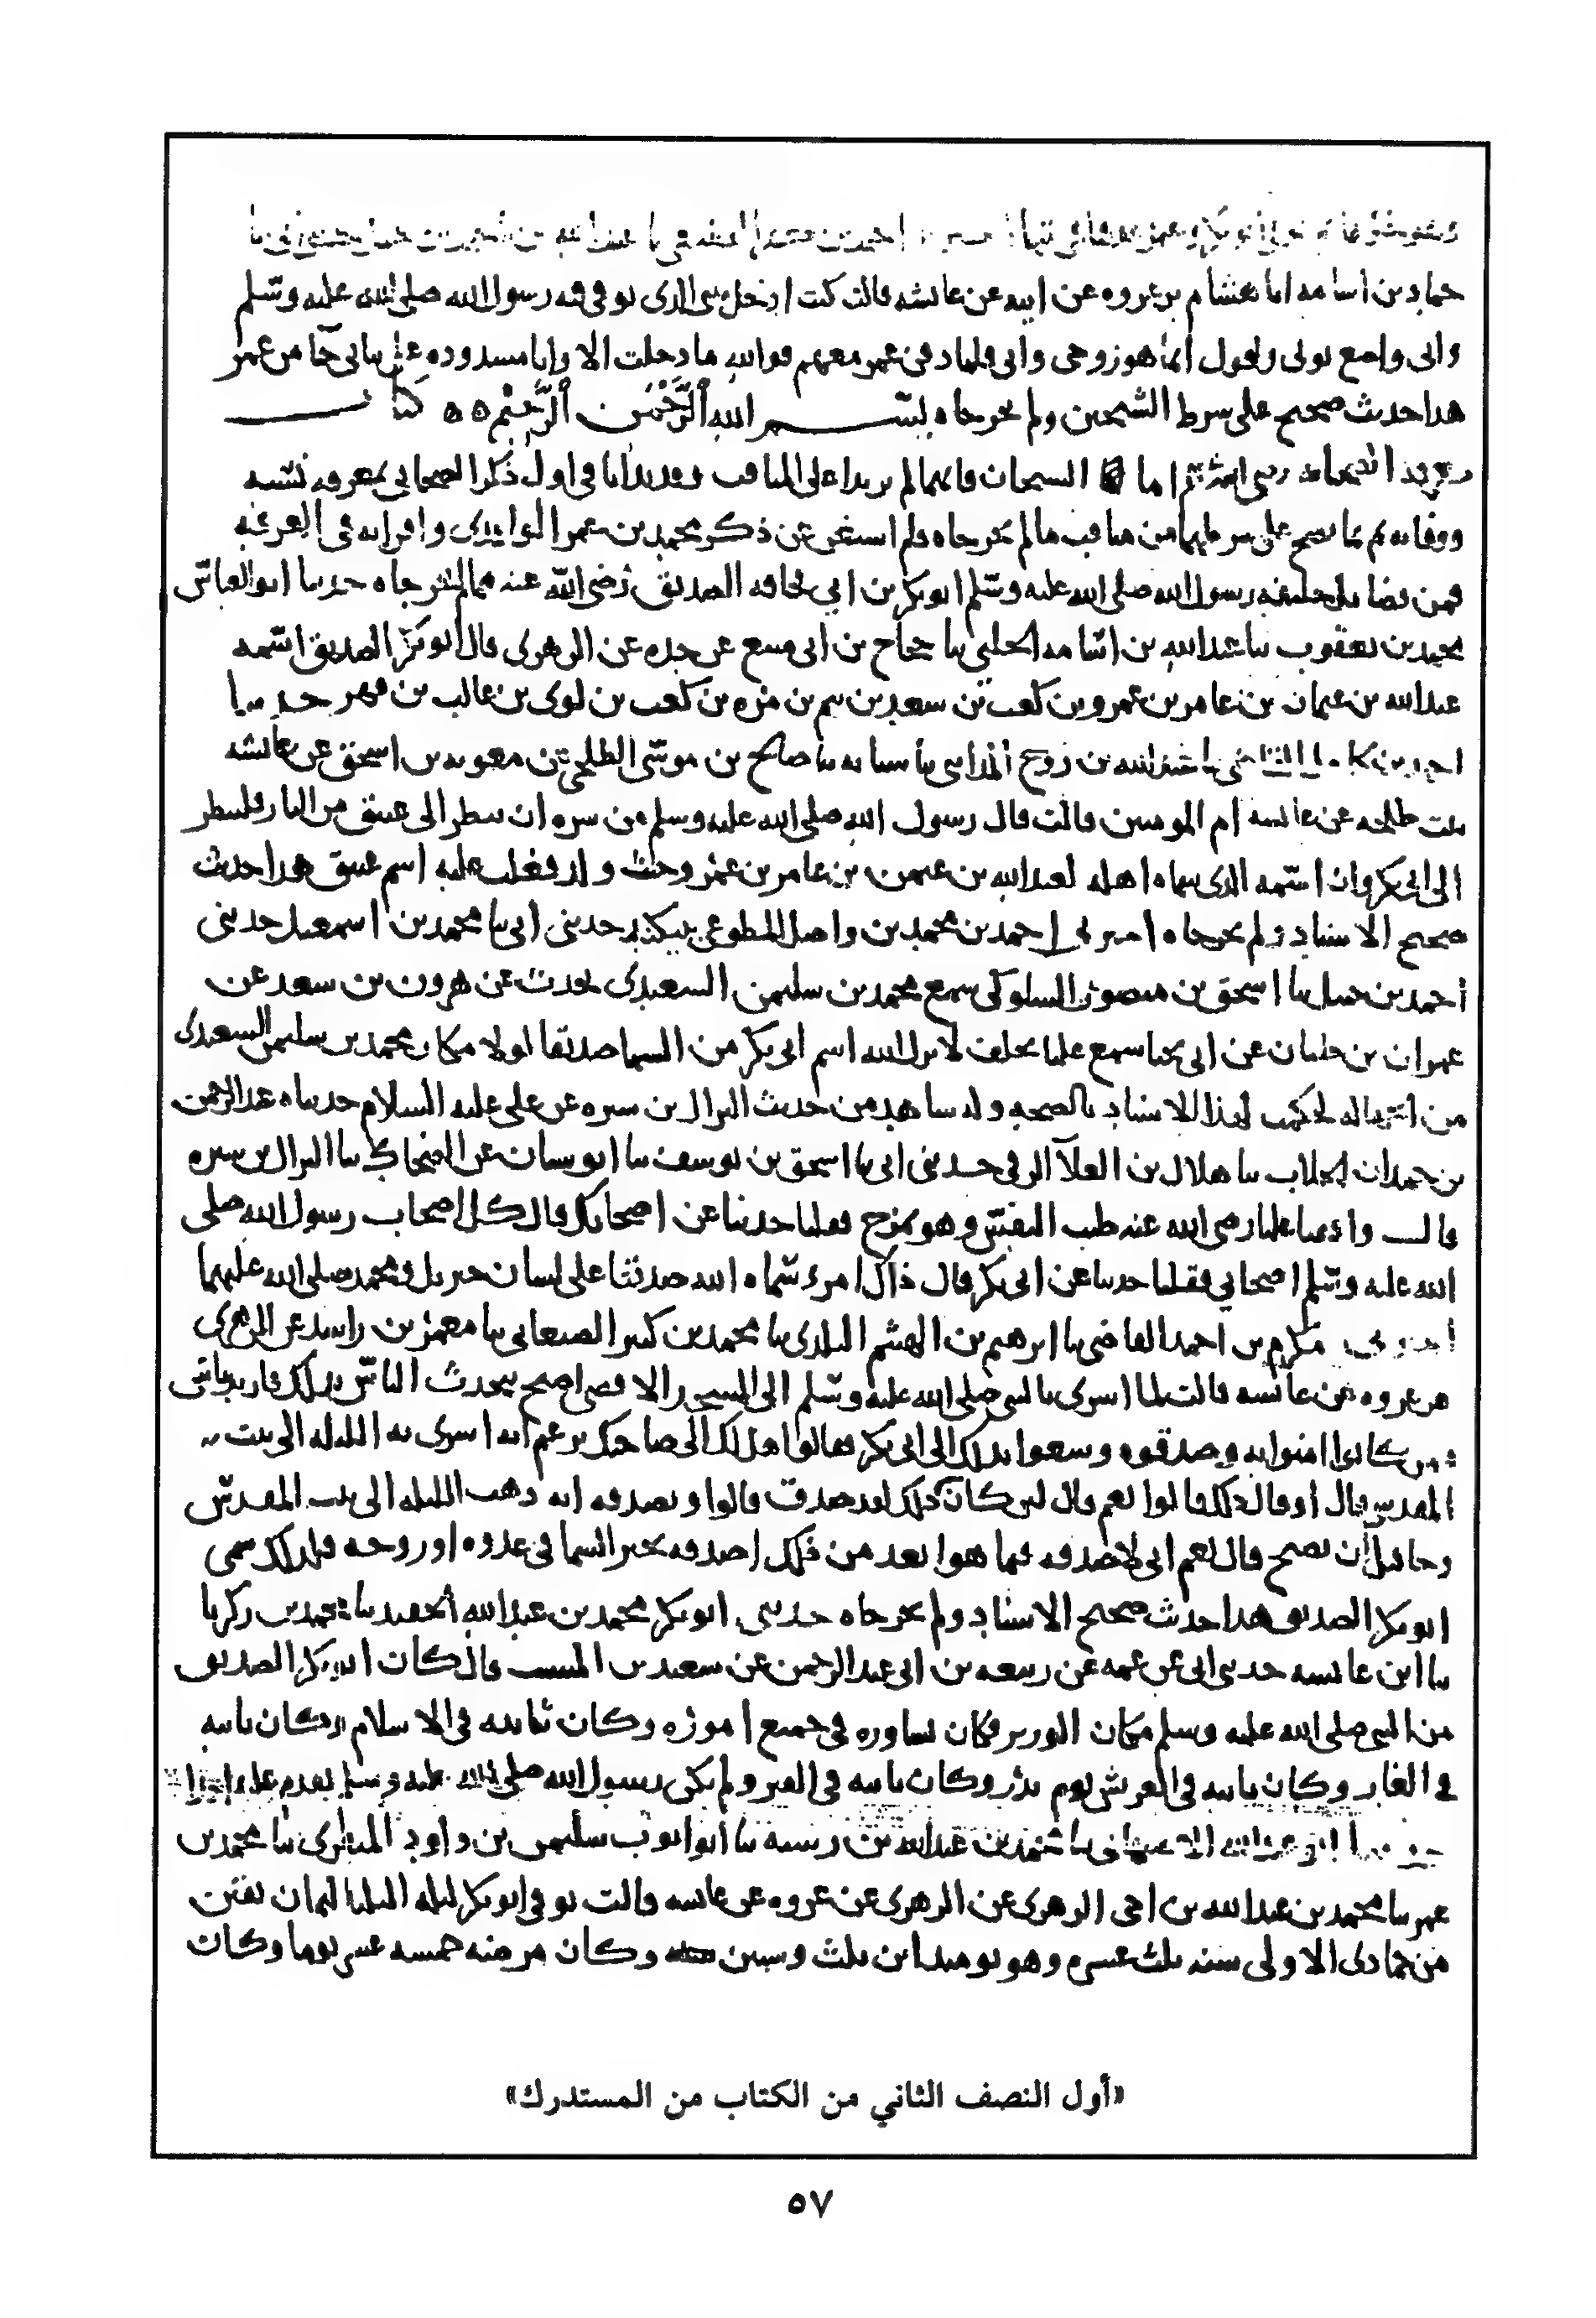 حماد بن اسامه انا هشام بن عروه عن ابيه عن عائشه قالت كنت ادخل بيتي الذي توفي فيه رسول الله صلى الله عليه وسلم
وابي واضع ثوبي واقول انما هو زوجي وابي فلما دفن عمر معهم فوالله ما دخلت الا وانا مشدوده علي ثيابي حيا من عمر
هذا حديث صحيح على شرط الشيخين ولم يخرجاه بسم الله الرحمن الرحيم كتاب
معرفه الصحابه رضي الله عنهم اما الشيخان فانهما لم يزيدا على المناقب وقد بدأنا في اول ذكر الصحابي بمعرفه نسبه
ووفاته ثم بما يصح على شرطهما من مناقبه مما لم يخرجاه فلم استغن عن ذكر محمد بن عمر الواقدي واقرانه في المعرفه
فمن فضائل خليفه رسول الله صلى الله عليه وسلم ابو بكر بن ابي قحافه الصديق رضي الله عنه مما لم يخرجاه حدثنا ابو العباس
محمد بن يعقوب ثنا عبد الله بن اسامه الحلبي ثنا حجاج بن ابي منيع عن جده عن الزهري قال ابو بكر الصديق اسمه
عبد الله بن عثمان بن عامر بن عمرو بن كعب بن سعد بن تيم بن مره بن كعب بن لوي بن غالب بن فهر حدثنا
احمد بن كامل القاضي ثنا عبد الله بن روح المدايني ثنا شبابه ثنا صالح بن موسى الطلحي عن معويه بن اسحق عن عائشه
بنت طلحه عن عائشه ام المومنين قالت قال رسول الله صلى الله عليه وسلم من سره ان ينظر الى عتيق من النار فلينظر
الى ابي بكر وان اسمه الذي سماه اهله لعبد الله بن عثمن بن عامر بن عمرو حيث ولد فغلب عليه اسم عتيق هذا حديث
صحيح الاسناد ولم يخرجاه اخبرني احمد بن محمد بن واصل المطوعي ببيكند حدثني ابي ثنا محمد بن اسمعيل حدثني
احمد بن حنبل ثنا اسحق بن منصور السلولي سمع محمد بن سليمن السعيدي يحدث عن هرون بن سعد عن
عمران بن ظبيان عن ابي يحيا سمع عليا يحلف لانزل الله اسم ابي بكر من السما صديقا لولا مكان محمد بن سليمن السعيدي
من الجهاله لحكمت لهذا الاسناد بالصحه وله شاهد من حديث النزال بن سبره عن علي عليه السلام حدثناه عبد الرحمن
بن حمدان الجلاب ثنا هلال بن العلا الرقي حدثني ابي ثنا اسحق بن يوسف ثنا ابو سنان عن الضحاك ثنا النزال بن سبره
قال وافقنا عليا رضي الله عنه طيب النفس وهو يمزح فقلنا حدثنا عن اصحابك قال كل اصحاب رسول الله صلى
الله عليه وسلم اصحابي فقلنا حدثنا عن ابي بكر قال ذاك امرء سماه الله صديقا على لسان جبريل ومحمد صلى الله عليهما
اخبرني مكرم بن احمد القاضي ثنا ابرهيم بن الهيثم البلدي ثنا محمد بن كثير الصنعاني ثنا معمر بن راشد عن الزهري
عن عروه عن عائشه قالت لما اسري بالنبي صلى الله عليه وسلم الى المسجد الاقصى اصبح يتحدث الناس بذلك فارتد ناس
ممن كانوا امنوا به وصدقوه وسعوا بذلك الى ابي بكر فقالوا هل لك الى صاحبك يزعم انه اسري به الليله الى بيت
المقدس قال اوقال ذلك قالوا نعم قال لئن كان قال ذلك لقد صدق قالوا وتصدقه انه ذهب الليله الى بيت المقدس
وجا قبل ان يصبح قال نعم اني لاصدقه فيما هو ابعد من ذلك اصدقه بخبر السما في غدوه او روحه فلذلك سمي
ابو بكر الصديق هذا حديث صحيح الاسناد ولم يخرجاه حدثني ابو بكر محمد بن عبد الله الحفيد ثنا محمد بن زكريا
ثنا ابن عائشه حدثني ابي عن عمه عن ربيعه بن ابي عبد الرحمن عن سعيد بن المسيب قال كان ابو بكر الصديق
من النبي صلى الله عليه وسلم مكان الوزير فكان يشاوره في جميع اموره وكان ثانيه في الاسلام وكان ثانيه
في الغار وكان ثانيه في العريش يوم بدر وكان ثانيه في القبر ولم يكن رسول الله صلى الله عليه وسلم يقدم عليه احدا
حدثنا ابو عبد الله الاصبهاني ثنا محمد بن عبد الله بن رسته ثنا ابو ايوب سليمن بن داود المنقري ثنا محمد بن
عمر ثنا محمد بن عبد الله بن اخي الزهري عن الزهري عن عروه عن عائشه قالت توفي ابو بكر ليله الثلثا لثمان بقين
من جمادى الاولى سنه ثلث عشره وهو يومئذ ابن ثلث وستين وكان مرضه خمسه عشر يوما وكان
«أول النصف الثاني من الكتاب من المستدرك»
٥٧